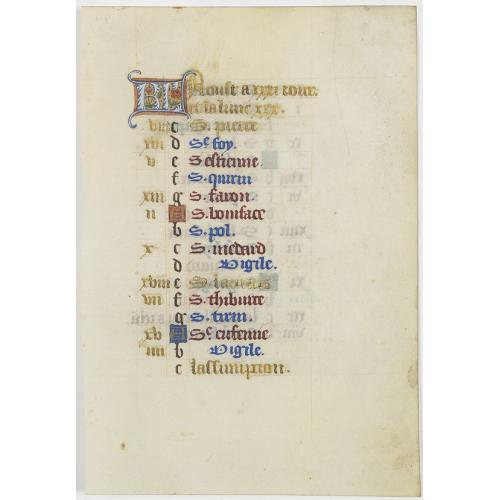 KL Aoust a xxxi iour.
et la lune xxx.
viii c S. pierre
xvi d Se foy.
v e S estienne.
f S. quirin
xiii g S. faron.
ii A S. boniface
b S. pol.
x c S. medard
d Vigile.
xviii e S. laurens
vii f S. thiburce
g S. tirin.
xv A Se eusenne
iiii b Vigile.
c lassumption.